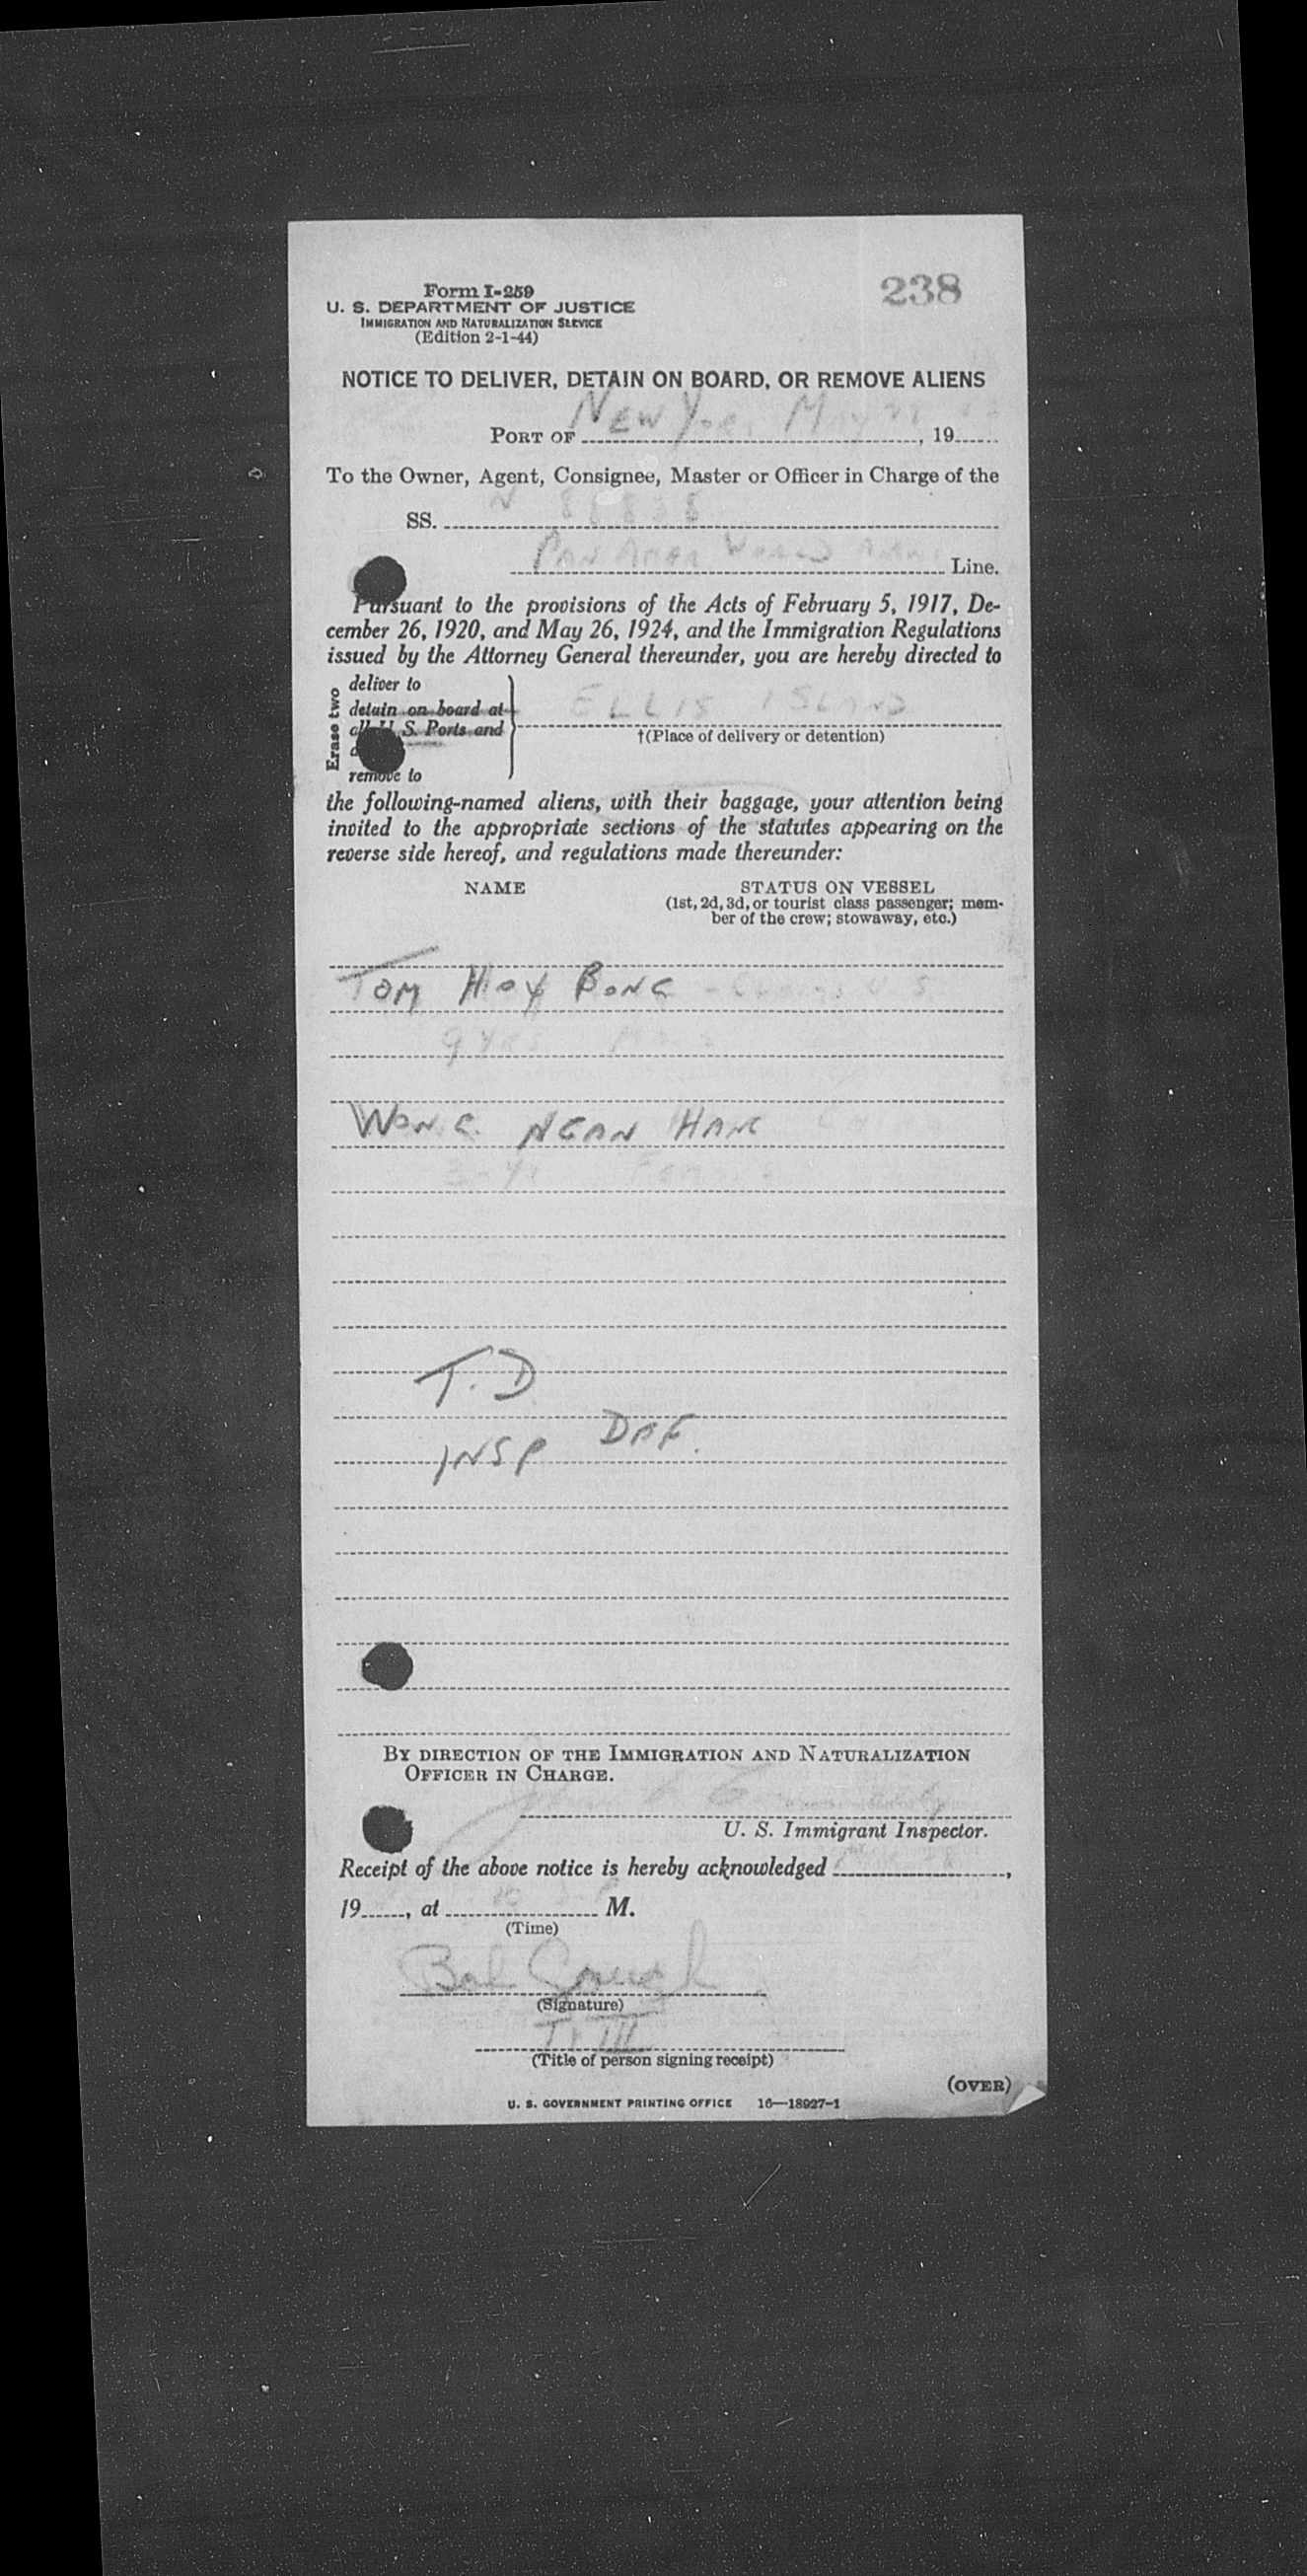 Form I-259
238
U. S. DEPARTMENT OF JUSTICE
IMMIGRATION AND NATURALIZATION SERVICE
(Edition 2-1-44)
NOTICE TO DELIVER, DETAIN ON BOARD, OR REMOVE ALIENS
PORT OF New York May , 19
To the Owner, Agent, Consignee, Master or Officer in Charge of the
SS. N
PAN AMER WORLD Line.
Pursuant to the provisions of the Acts of February 5, 1917, De-
cember 26, 1920, and May 26, 1924, and the Immigration Regulations
issued by the Attorney General thereunder, you are hereby directed to
Erase two
deliver to
detain on board at
all U. S. Ports and
remove to
ELLIS ISLAND
†(Place of delivery or detention)
the following-named aliens, with their baggage, your attention being
invited to the appropriate sections of the statutes appearing on the
reverse side hereof, and regulations made thereunder:
NAME STATUS ON VESSEL
(1st, 2d, 3d, or tourist class passenger; mem-
ber of the crew; stowaway, etc.)
TOM HOY BONG
9 YRS
WONG NGAN HANG
T.D
INSP DAF.
BY DIRECTION OF THE IMMIGRATION AND NATURALIZATION
OFFICER IN CHARGE.
U. S. Immigrant Inspector.
Receipt of the above notice is hereby acknowledged ,
19 , at M.
(Time)
(Signature)
(Title of person signing receipt)
(OVER)
U. S. GOVERNMENT PRINTING OFFICE 16—18927-1